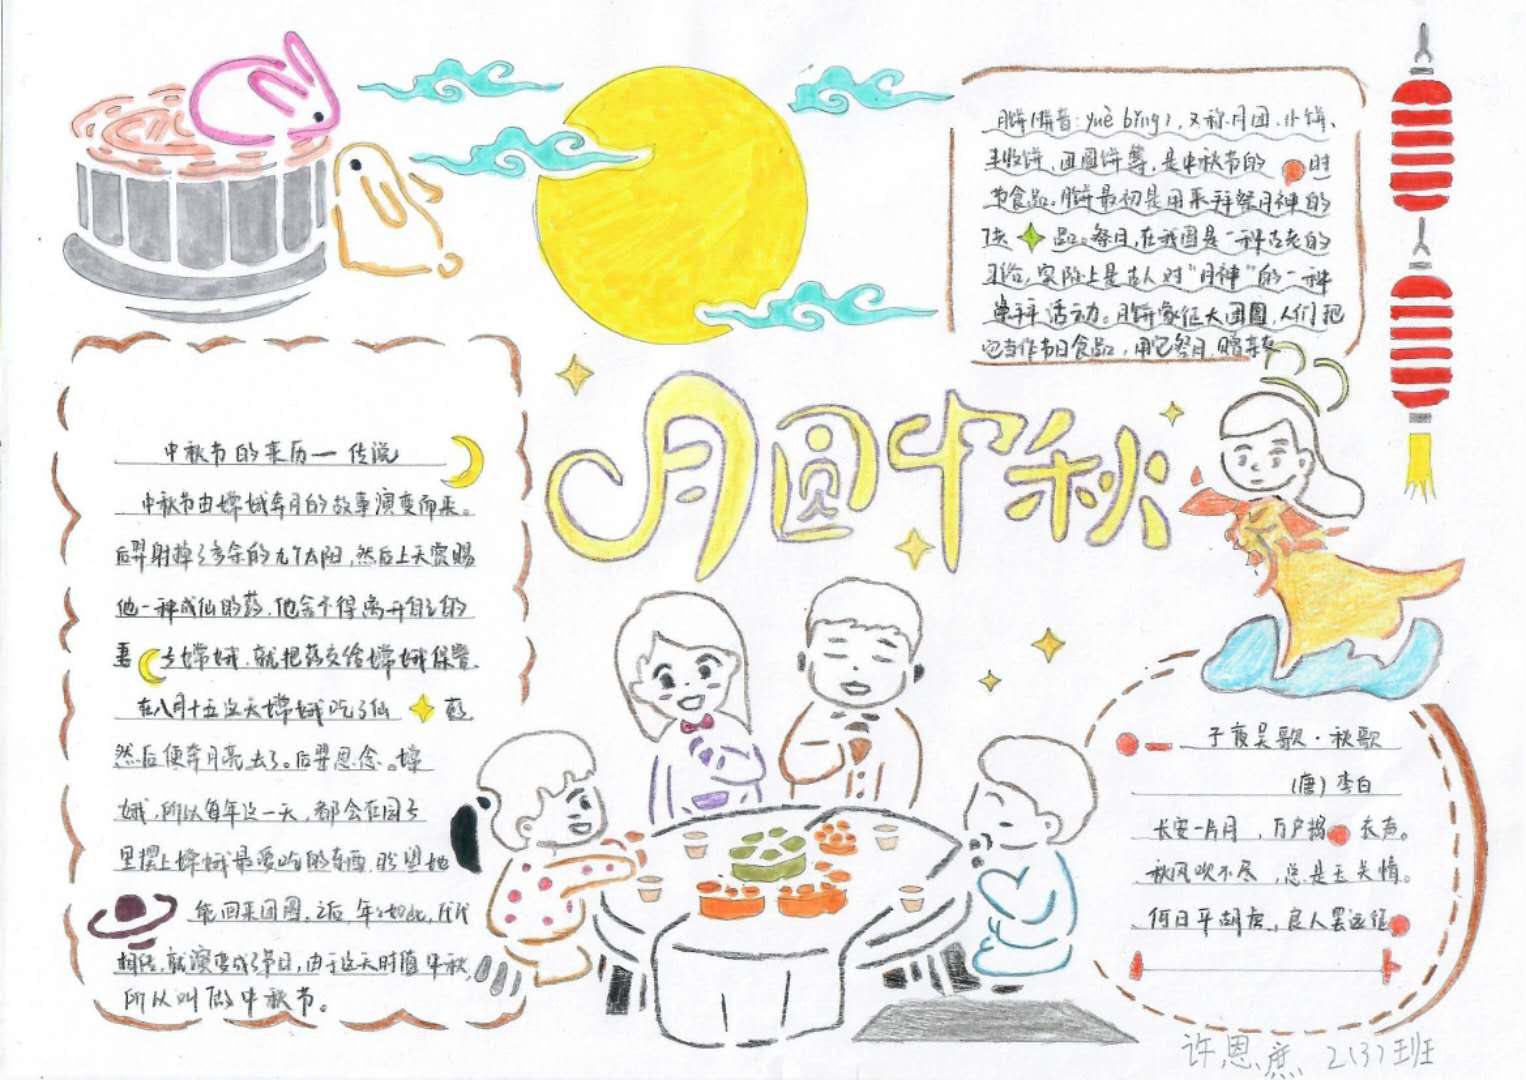 月饼(拼音:yuè bǐng),又称月团、小饼、
丰收饼、团圆饼等,是中秋节的时
节食品。月饼最初是用来拜祭月神的
供品。祭月,在我国是一种古老的
习俗,实际上是古人对“月神”的一种
崇拜活动。月饼象征大团圆,人们把
它当作节日食品,用它祭月、赠亲友
月圆中秋
中秋节的来历一传说
中秋节由嫦娥奔月的故事演变而来。
后羿射掉了多余的九个太阳,然后上天赏赐
他一种成仙的药,他舍不得离开自己的
妻子嫦娥,就把药交给嫦娥保管,
在八月十五这天嫦娥吃了仙药,
然后便奔月亮去了。后羿思念。嫦
娥,所以每年这一天,都会在园子
里摆上嫦娥最爱吃的东西,盼望她
能回来团圆,之后,年年如此,代代
相传,就演变成了节日,由于这天时值中秋,
所以叫做中秋节。
子夜吴歌·秋歌
(唐)李白
长安一片月,万户捣衣声。
秋风吹不尽,总是玉关情。
何日平胡虏,良人罢远征
许恩庶 2(3)班